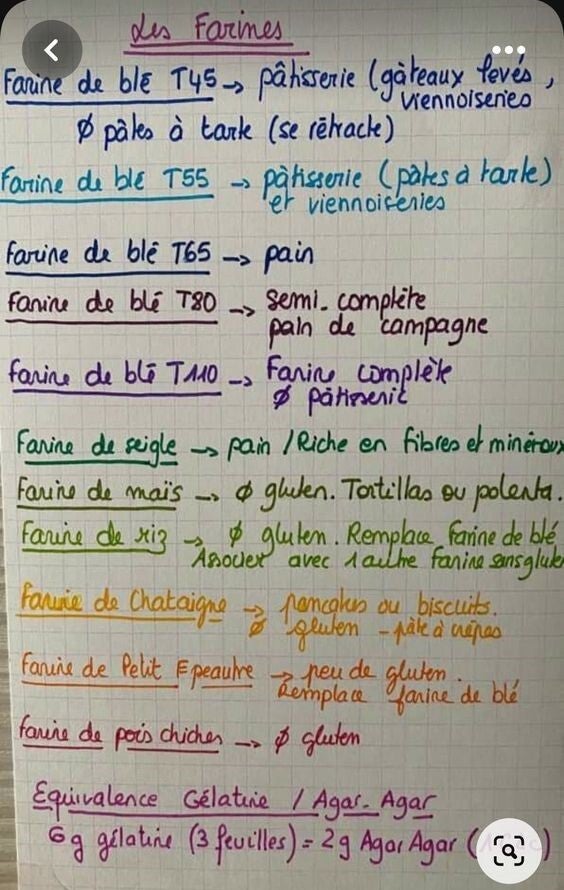 Les Farines
Farine de blé T45 → pâtisserie (gâteaux levés,
viennoiseries
Ø pâtes à tarte (se rétracte)
Farine de blé T55 → pâtisserie (pâtes à tarte)
et viennoiseries
Farine de blé T65 → pain
Farine de blé T80 → Semi-complète
pain de campagne
Farine de blé T110 → Farine complète
Ø pâtisserie
Farine de seigle → pain / Riche en fibres et minéraux
Farine de maïs → Ø gluten. Tortillas ou polenta.
Farine de riz → Ø gluten. Remplace farine de blé
Associer avec 1 autre farine sans gluten
Farine de Chataigne → pancakes ou biscuits.
Ø gluten - pâte à crêpes
Farine de Petit Epeautre → peu de gluten.
Remplace farine de blé
Farine de pois chiches → Ø gluten
Equivalence Gélatine / Agar-Agar
6g gélatine (3 feuilles) = 2g Agar Agar (